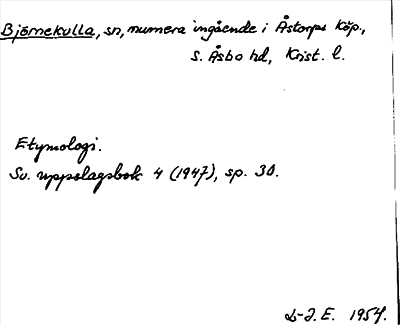 Björnekulla, sn, numera ingående i Åstorps köp.,
S. Åsbo hd, Krist. l.
Etymologi.
Sv. uppslagsbok 4 (1947), sp. 30.
L-J. E. 1954.